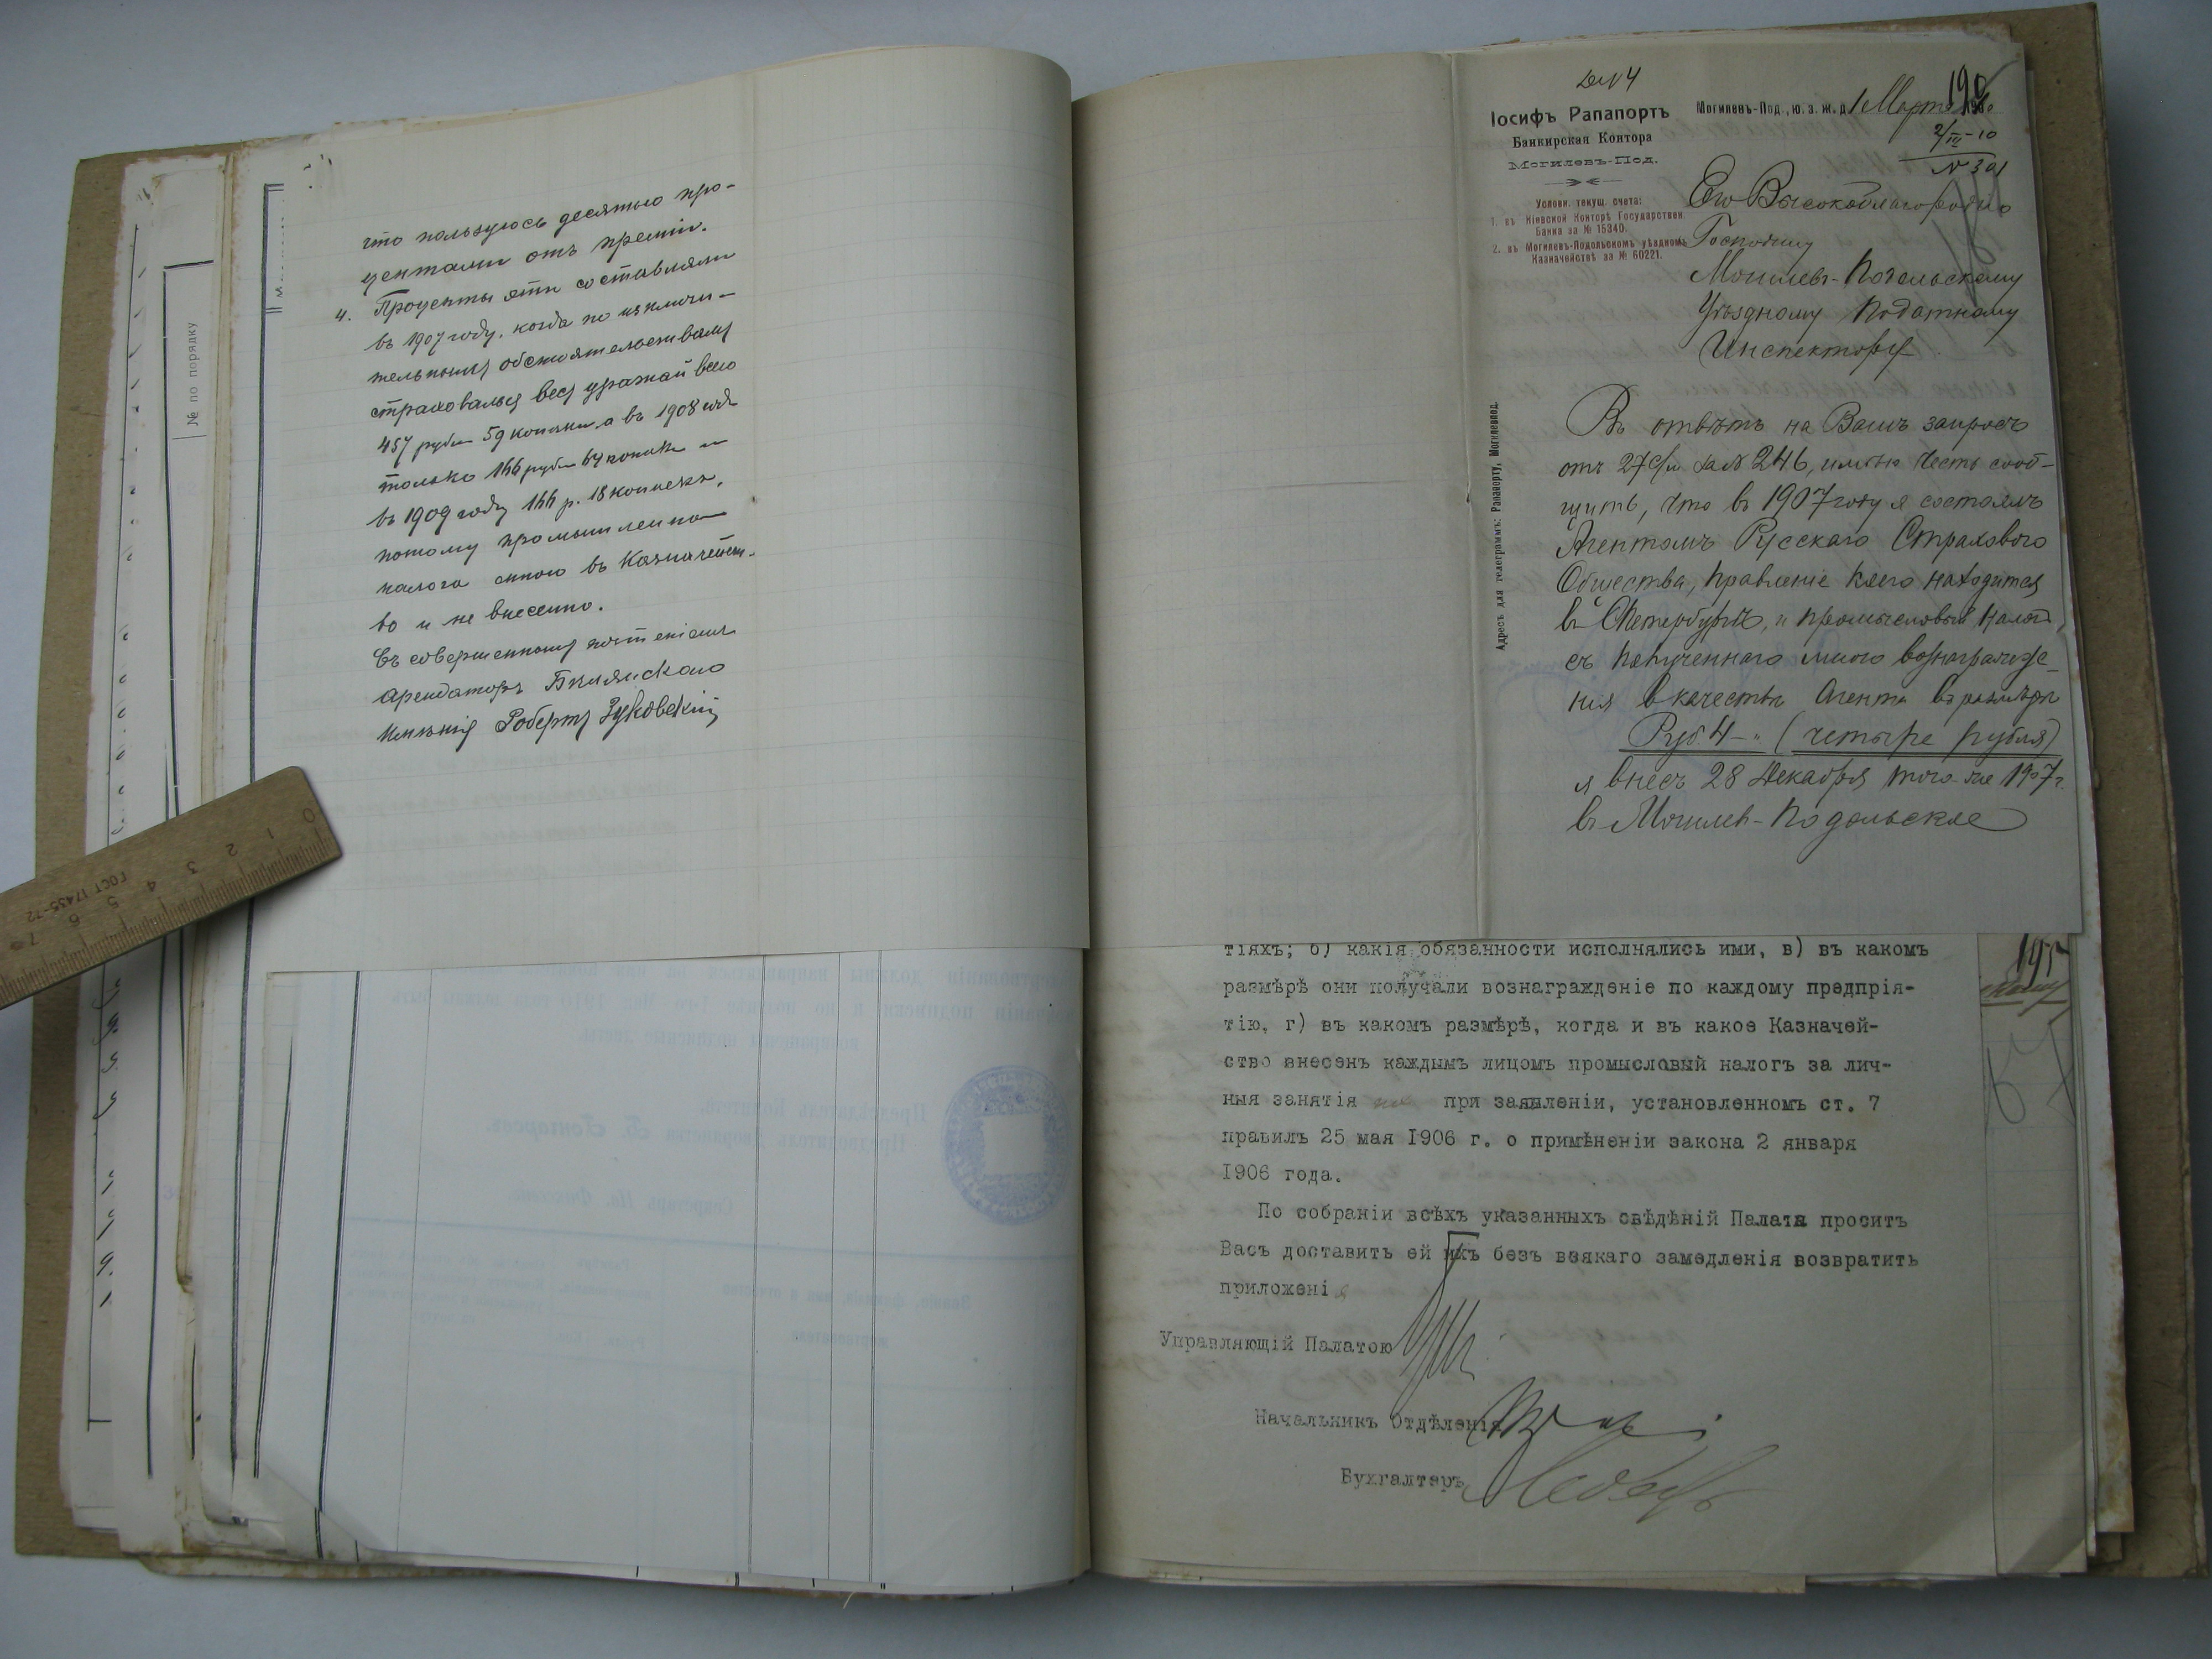 № по порядку
что пользуюсь десятью про-
центами отъ преміи.
4. Проценты эти составляли
въ 1907 году, когда по исключи-
тельнымъ обстоятельствамъ
страховался весь урожай всего
457 рубл 59 копѣекъ а въ 1908 году
только 166 рубл 64 копѣйки и
въ 1909 году 166 р. 18 копѣекъ,
потому промысловаго
налога мною въ Казначейст-
во и не внесено.
Съ совершеннымъ почтеніемъ
Арендаторъ
Имѣнія Робертъ Зуковскій
0 1 2 3 4 5 6 7
ГОСТ 17435-72
190
Іосифъ Рапапортъ
Банкирская Контора
Могилевъ-Под.
Могилевъ-Под., ю. з. ж. д. 1 Марта 1910
2/III-10
№ 301
Услов. текущ. счета:
1. въ Кіевской Конторѣ Государствен.
Банка за № 15340.
2. въ Могилевъ-Подольскомъ уѣздномъ
Казначействѣ за № 60221.
Адресъ для телеграммъ: Рапапорту, Могилевпод.
Его Высокоблагородію
Господину
Могилевъ-Подольскому
Уѣздному Податному
Инспектору
Въ отвѣтъ на Вашъ запросъ
отъ 27 с/м за № 246, имѣю честь сооб-
щить, что въ 1907 году я состоялъ
Агентомъ Русскаго Страхового
Общества, правленіе коего находится
въ СПетербургѣ, и промысловый налогъ
съ полученнаго мною вознагражде-
нія въ качествѣ Агента въ размѣрѣ
Руб. 4 -„ (четыре рубля)
я внесъ 28 Декабря того-же 1907 г.
въ Могилев-Подольское
195
тіяхъ; б) какія обязанности исполнялись ими, в) въ какомъ
размѣрѣ они получали вознагражденіе по каждому предпрія-
тію, г) въ какомъ размѣрѣ, когда и въ какое Казначей-
ство внесенъ каждымъ лицомъ промысловый налогъ за лич-
ныя занятія при заявленіи, установленномъ ст. 7
правилъ 25 мая 1906 г. о примѣненіи закона 2 января
1906 года.
По собраніи всѣхъ указанныхъ свѣдѣній Палата проситъ
Васъ доставить ей ихъ безъ всякаго замедленія возвратить
приложенія
Управляющій Палатою
Начальникъ Отдѣленія
Бухгалтеръ